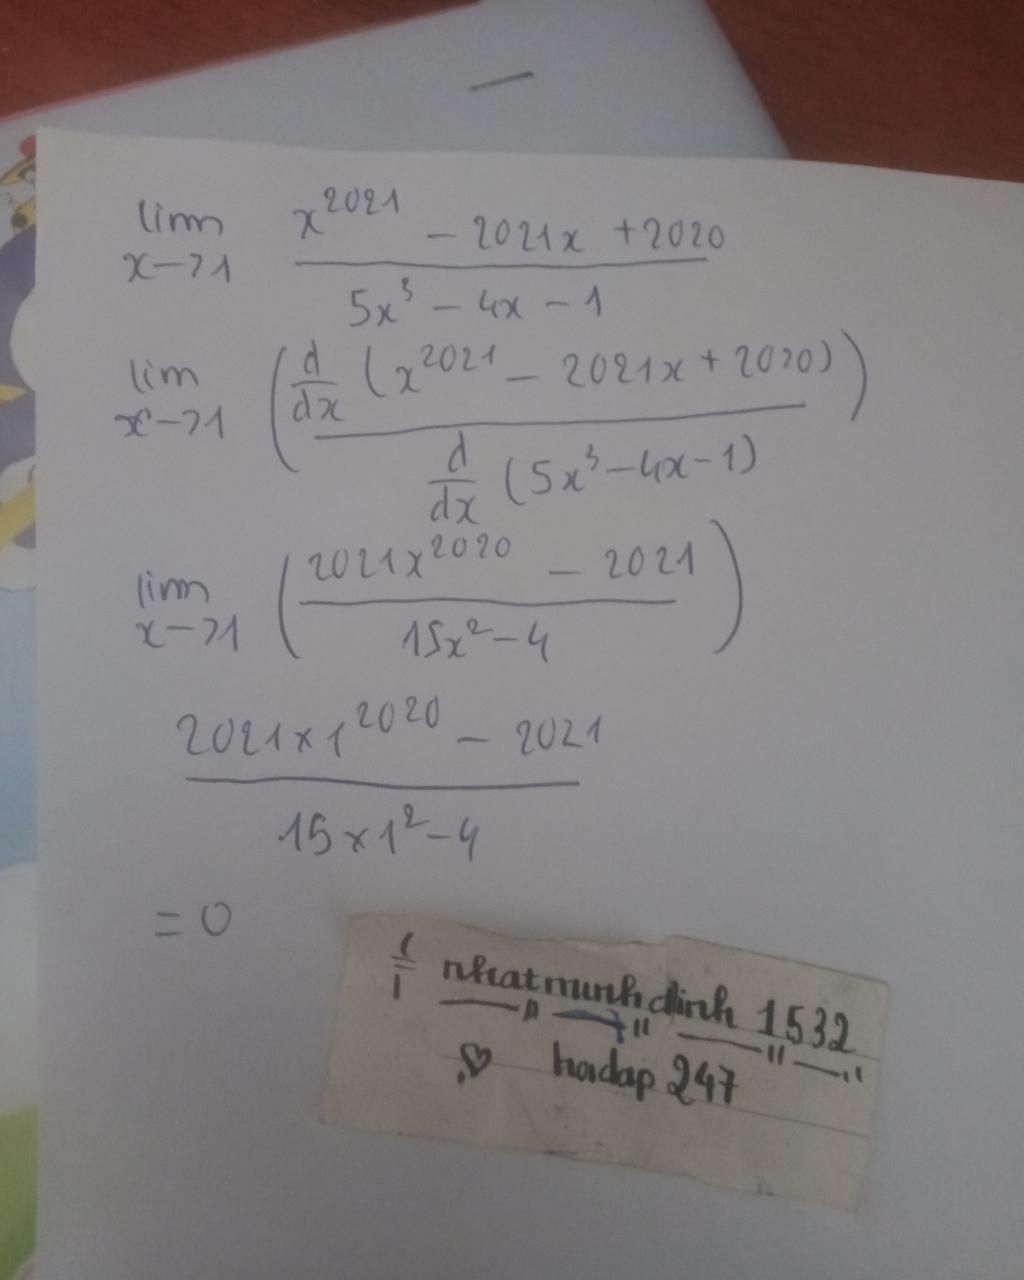 lim x->1 x^2021 - 2021x + 2020 / 5x^3 - 4x - 1
lim x->1 ( d/dx (x^2021 - 2021x + 2020) / d/dx (5x^3 - 4x - 1) )
lim x->1 ( 2021x^2020 - 2021 / 15x^2 - 4 )
2021 x 1^2020 - 2021 / 15 x 1^2 - 4
= 0
nhatminhdinh 1532
hoidap 247